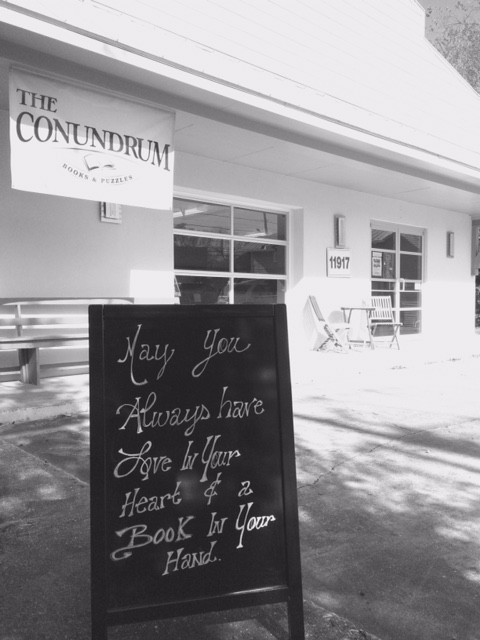 THE
CONUNDRUM
BOOKS & PUZZLES
11917
May You
Always have
Love In Your
Heart & a
Book In Your
Hand.